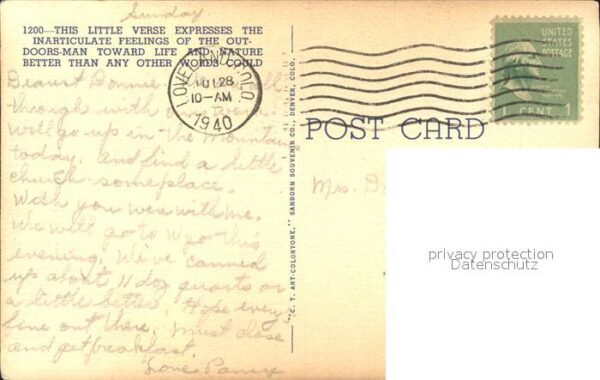 Sunday
1200—THIS LITTLE VERSE EXPRESSES THE
INARTICULATE FEELINGS OF THE OUT-
DOORS-MAN TOWARD LIFE AND NATURE
BETTER THAN ANY OTHER WORDS COULD
Dearest Donnie
through with our
Will go up in the Mountains
today. and find a little
church someplace.
Wish you were with me.
We will go to Wyo this
evening. We've canned
up about 11 doz quarts or
a little better. Hope every
fine out there. Must close
and get breakfast.
Love Pansy
LOVELAND, COLO.
JUL 28
10-AM
1940
UNITED
STATES
POSTAGE
CENT 1
POST CARD
"C. T. ART-COLORTONE," SANBORN SOUVENIR CO., DENVER, COLO.
Mrs. D
privacy protection
Datenschutz